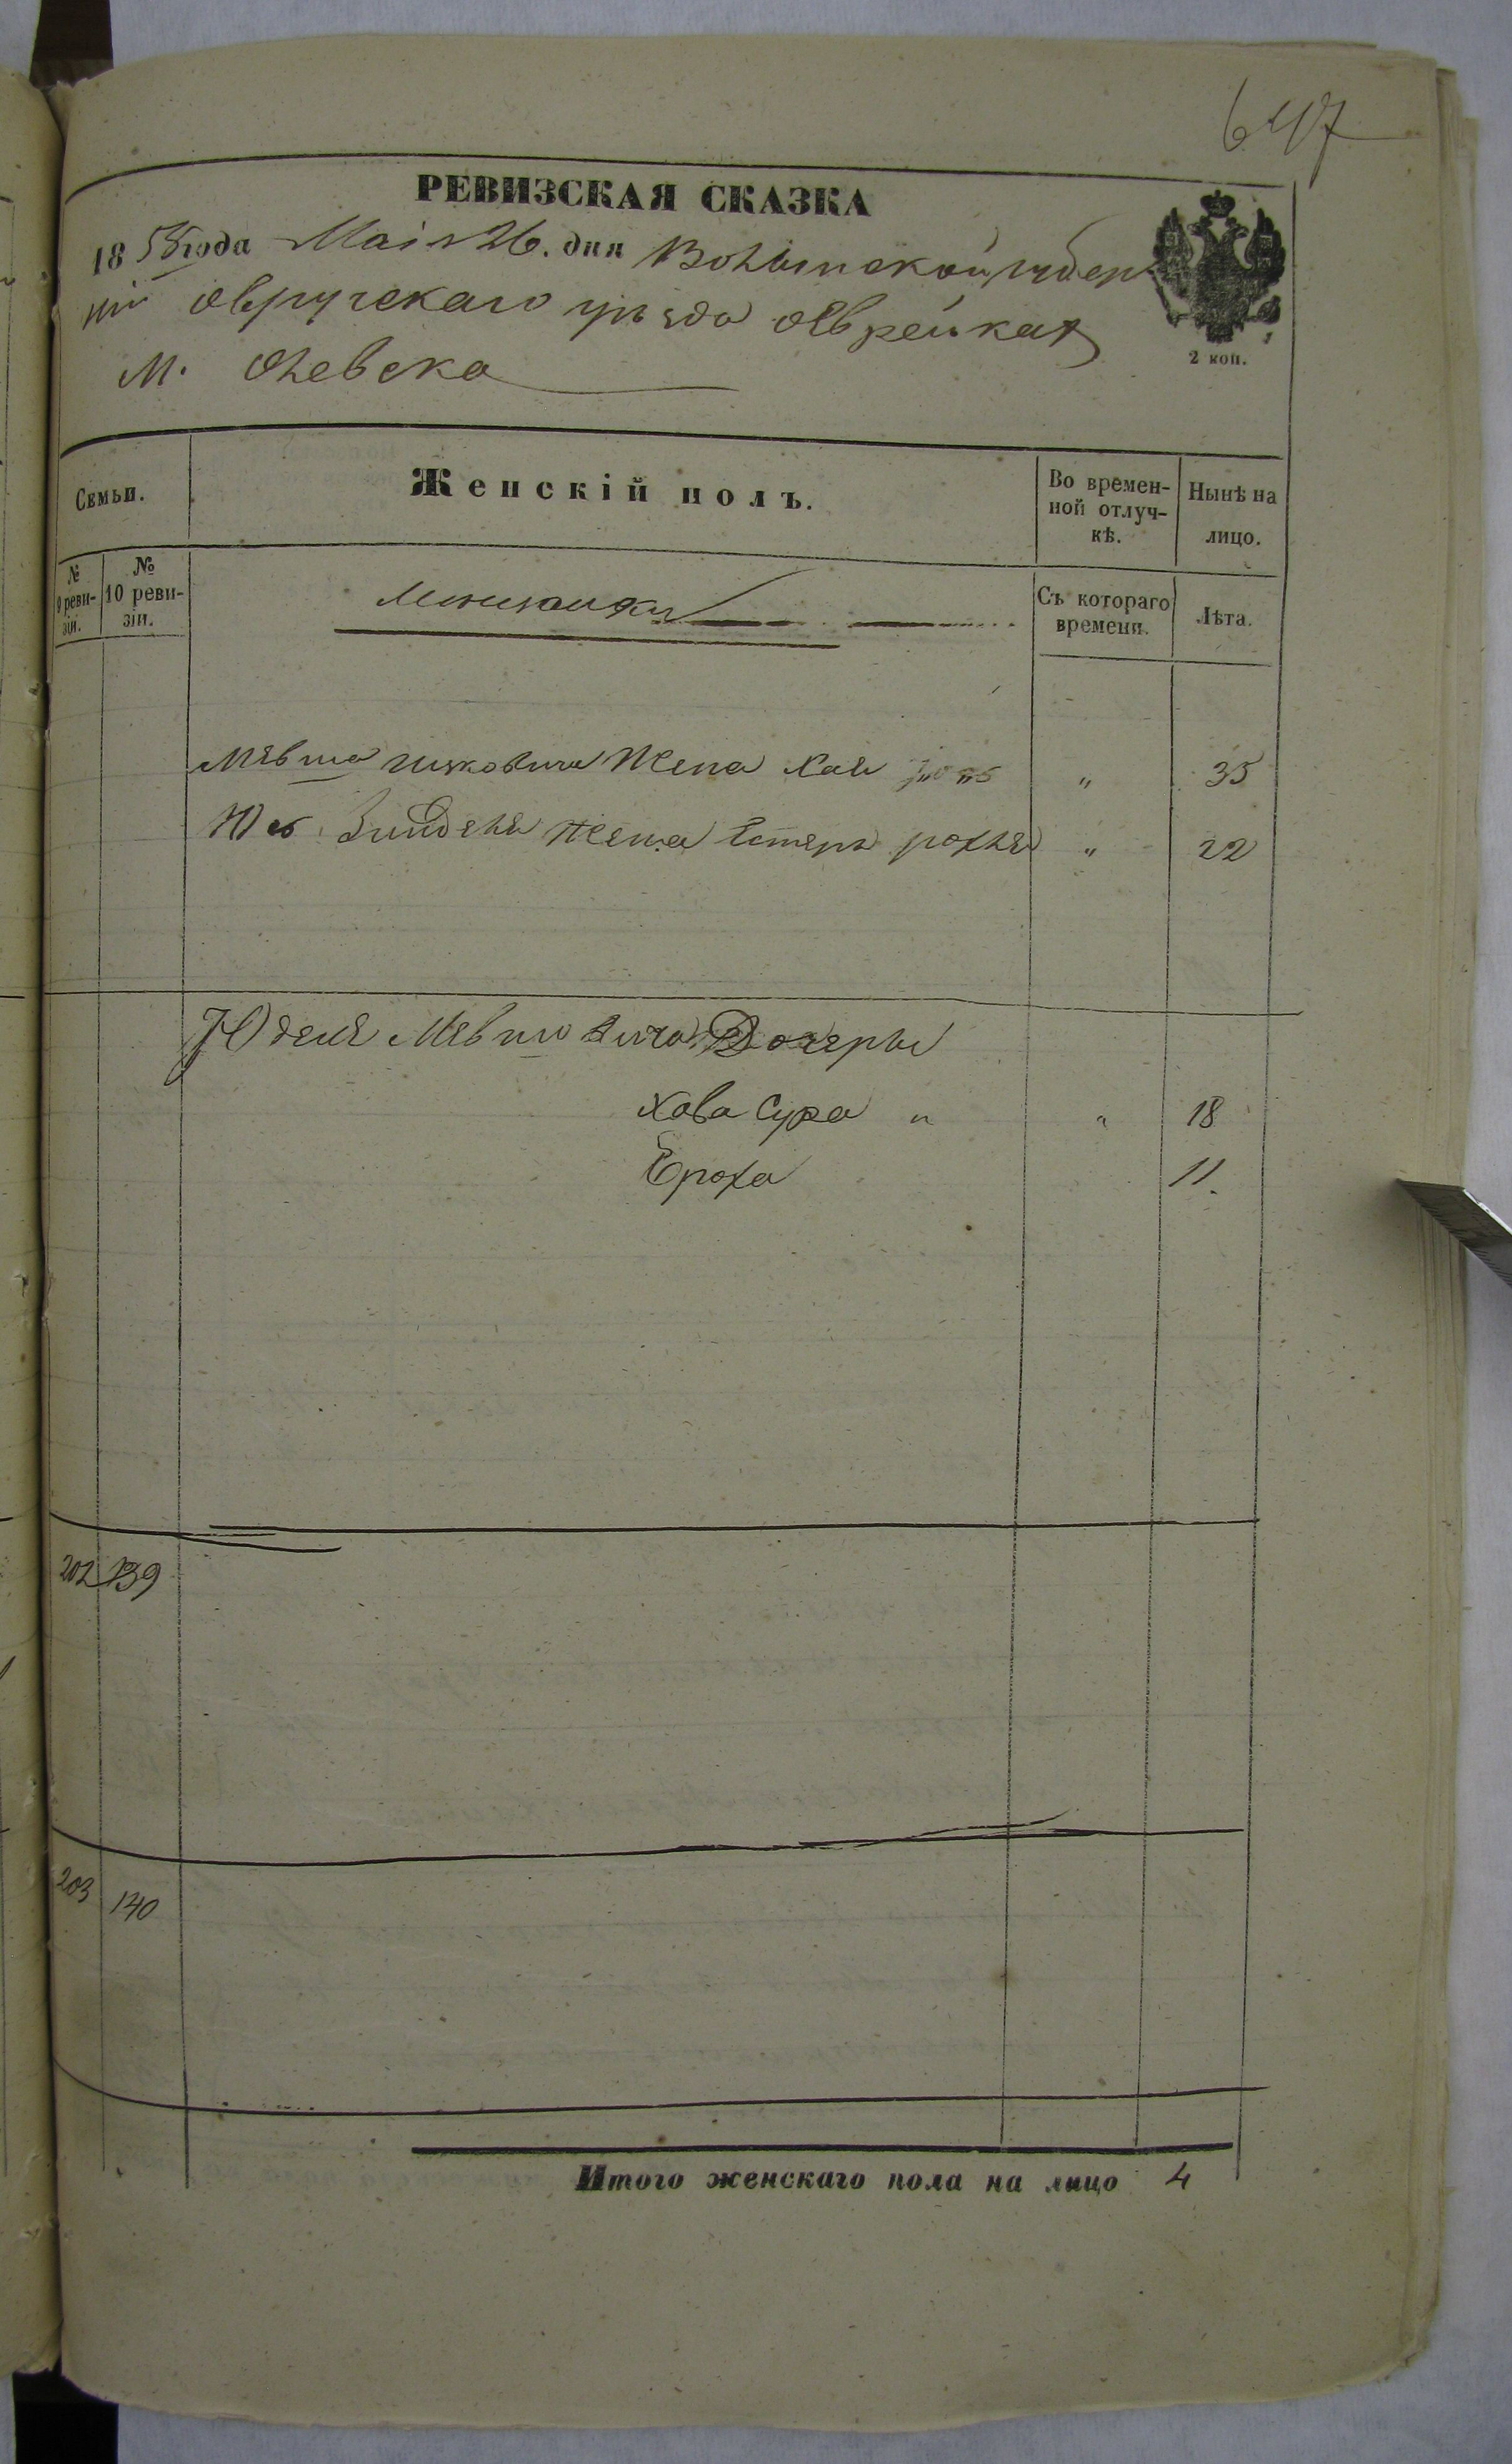 647
РЕВИЗСКАЯ СКАЗКА
1858 года Маія 26. дня Волынской губер
ніи Овручскаго уѣзда о Еврейкахъ
м. Олевска
2 коп.
Семьи.
Женскій полъ.
Во времен-
ной отлуч-
кѣ.
Нынѣ на
лицо.
№
9 реви-
зіи.
№
10 реви-
зіи.
Мѣщанки
Съ котораго
времени.
Лѣта.
жена Хая " 35
жена Естеръ рохля " 22
Юделя Мевшовича Дочеры
Хава Сура " " 18
Ероха 11.
202 139
203 140
Итого женскаго пола на лицо 4